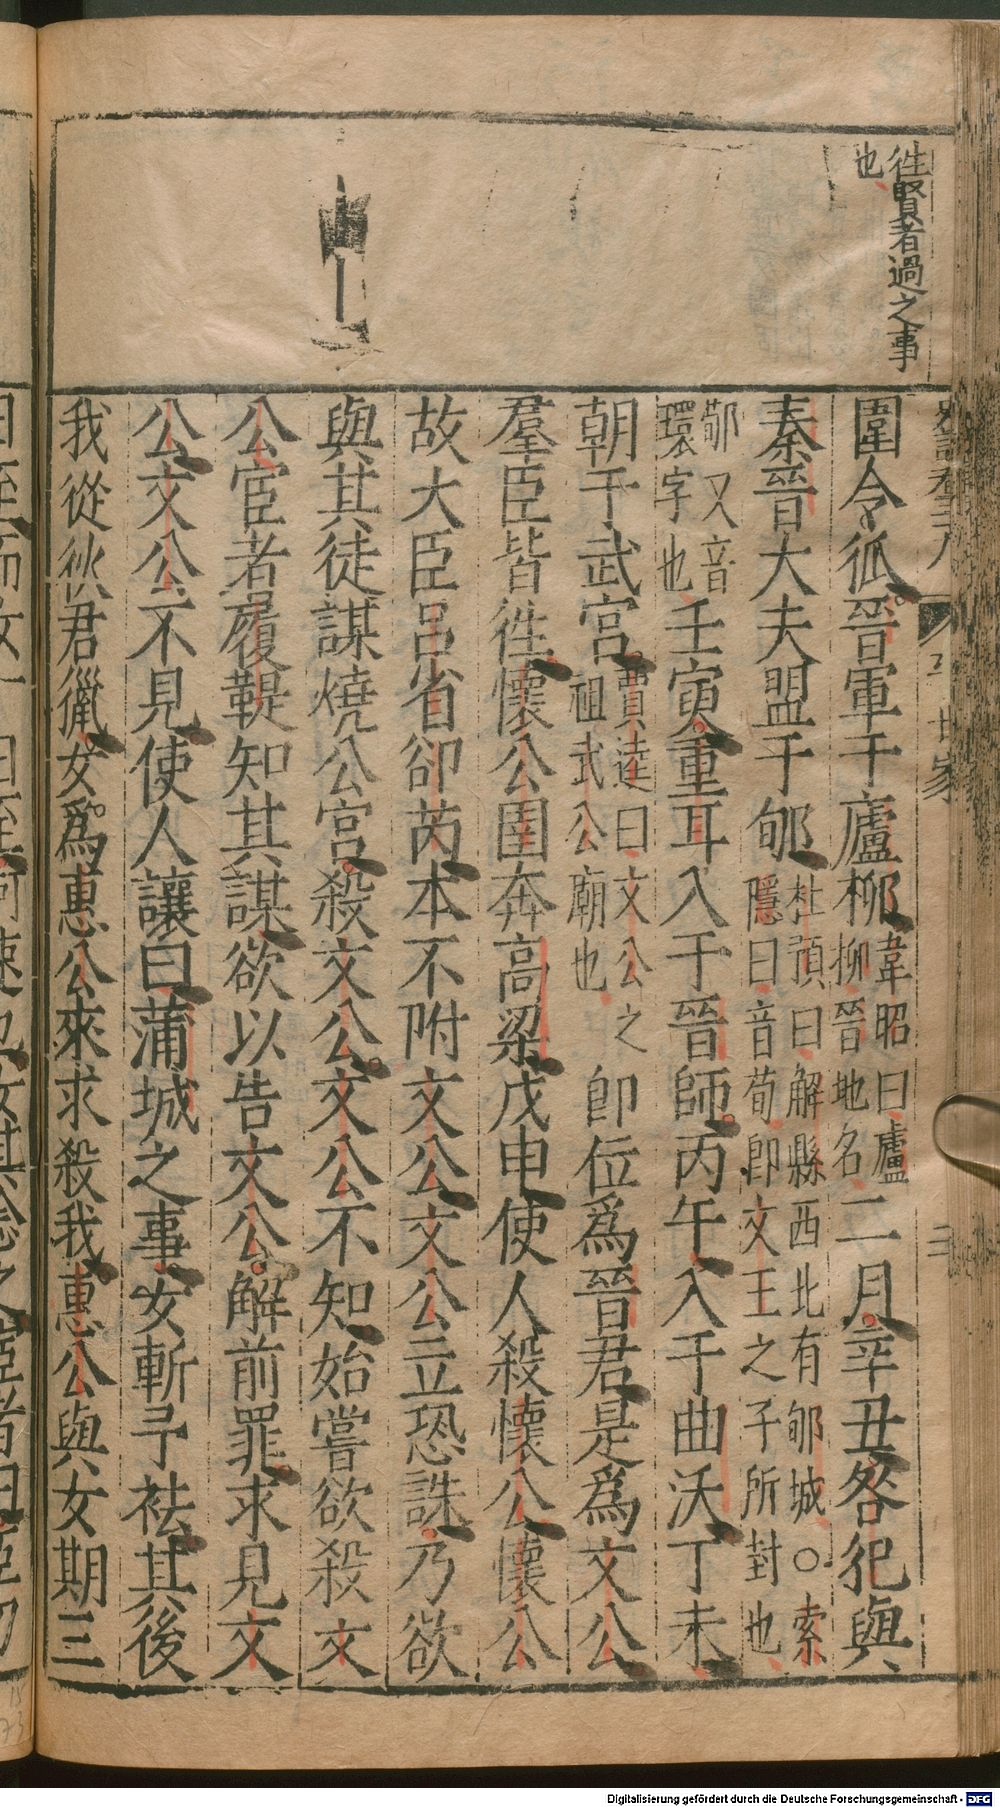 徃賢者過之事
也
圍令狐晉軍于廬柳韋昭曰廬柳晉地名二月辛丑咎犯與
秦晉大夫盟于郇杜預曰解縣西北有郇城○索隱曰音荀卽文王之子所封也
郇又音環字也壬寅重耳入于晉師丙午入于曲沃丁未
朝于武宮賈逵曰文公之祖武公廟也卽位爲晉君是爲文公
羣臣皆徃懷公圉奔高梁戊申使人殺懷公懷公
故大臣呂省卻芮本不附文公文公立恐誅乃欲
與其徒謀燒公宮殺文公文公不知始嘗欲殺文
公宦者履鞮知其謀欲以告文公解前罪求見文
公文公不見使人讓曰蒲城之事女斬予袪其後
我從狄君獵女爲惠公來求殺我惠公與女期三
Digitalisierung gefördert durch die Deutsche Forschungsgemeinschaft - DFG